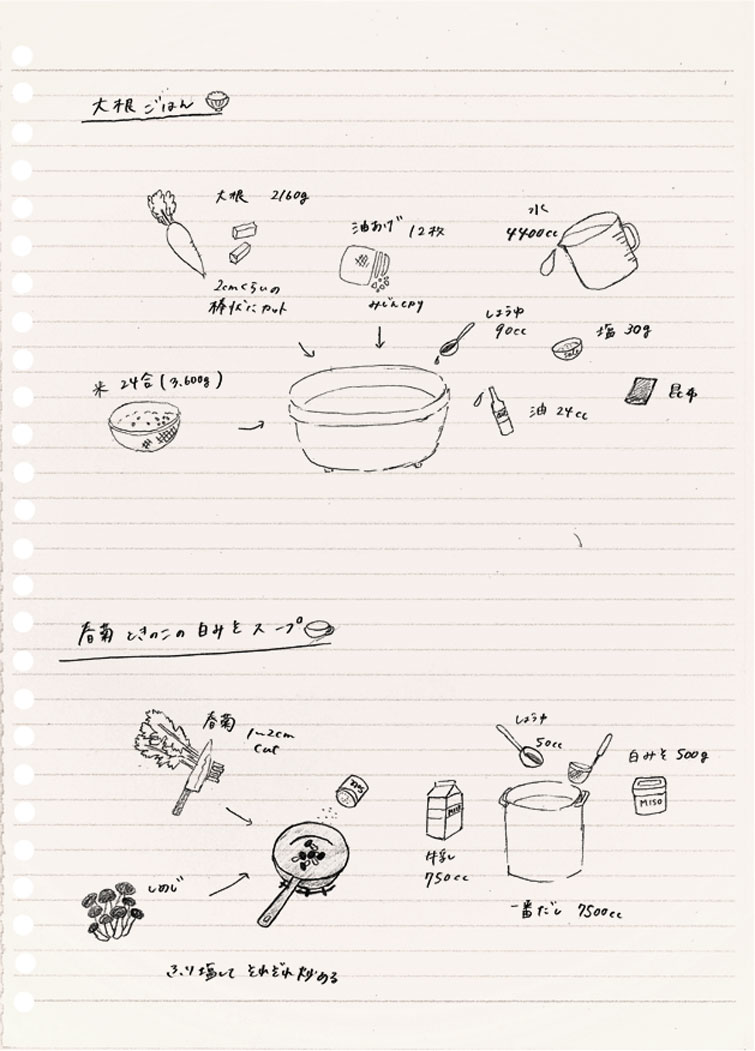 大根ごはん
大根 2160g
2cmくらいの
棒状にカット
油あげ 12枚
みじん切り
水
4400cc
しょうゆ
90cc
塩 30g
salt
昆布
油 24cc
米 24合(3.600g)
春菊ときのこの白みそスープ
春菊 1~2cm
cut
しめじ
ふり塩して それぞれ炒める
牛乳
750cc
しょうゆ
50cc
白みそ 500g
MISO
一番だし 7500cc